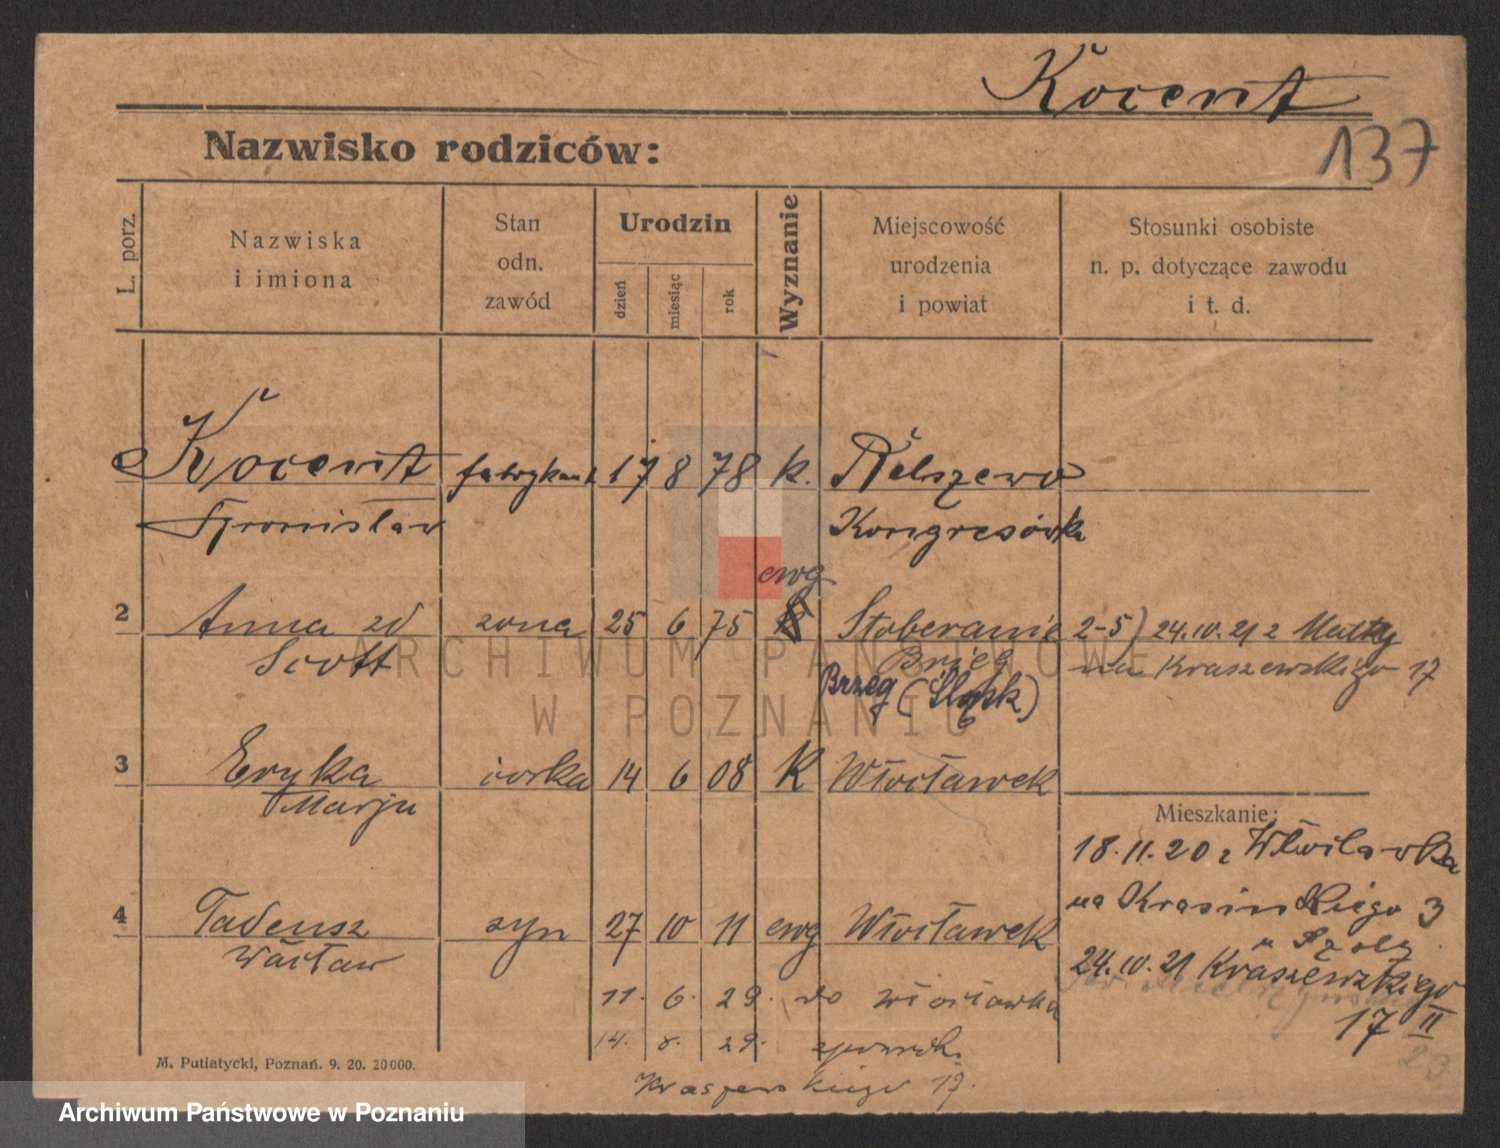 Kocent
137
Nazwisko rodziców:
L. porz.
Nazwiska
i imiona
Stan
odn.
zawód
Urodzin
dzień
miesiąc
rok
Wyznanie
Miejscowość
urodzenia
i powiat
Stosunki osobiste
n. p. dotyczące zawodu
i t. d.
Kocent fabrykant 17 8 78 k.
Bronisław Kongresówka
ewg
2 Anna zd żona 25 6 75 Stoberanie 2-5) 24.10.21 z Matką
Scott Brieg na Kraszewskigo 17
Brzeg (Śląsk)
3 Eryka córka 14 6 08 K Włocławek
Marja
Mieszkanie:
18.11.20 z Włocławka
4 Tadeusz syn 27 10 11 ewg Włocławek
Wacław
na Krasińskiego 3
24.10.21 Kraszewskiego
17 II
23
11. 6. 29. do Włocławka
14. 8. 29.
Kraszewskiego 17.
M. Putiatycki, Poznań. 9. 20. 20000.
ARCHIWUM PAŃSTWOWE
W POZNANIU
Archiwum Państwowe w Poznaniu